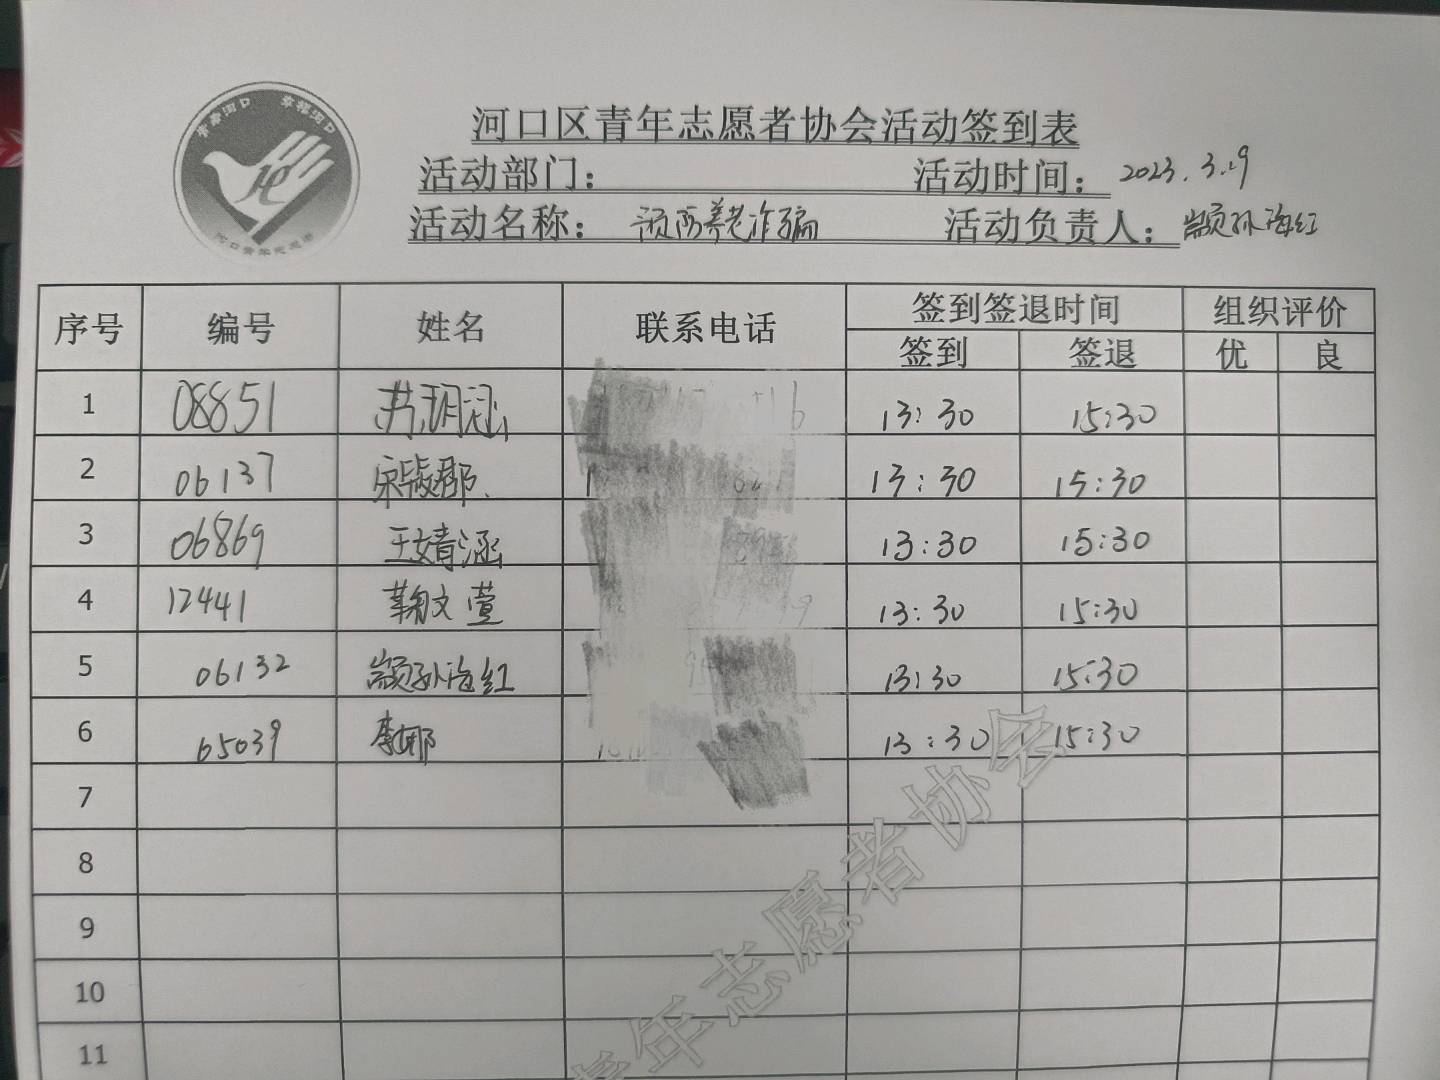 青春河口 幸福河口
河口区青年志愿者协会活动签到表
活动部门： 活动时间：2023.3.19
活动名称：预防养老诈骗 活动负责人：颛孙海红
序号 编号 姓名 联系电话 签到签退时间 组织评价
签到 签退 优 良
1 08851 13:30 15:30
2 06137 宋毓郡 13:30 15:30
3 06869 王婧涵 13:30 15:30
4 12441 鞠文萱 13:30 15:30
5 06132 颛孙海红 13:30 15:30
6 65039 李娜 13:30 15:30
7
8
9
10
11
青年志愿者协会